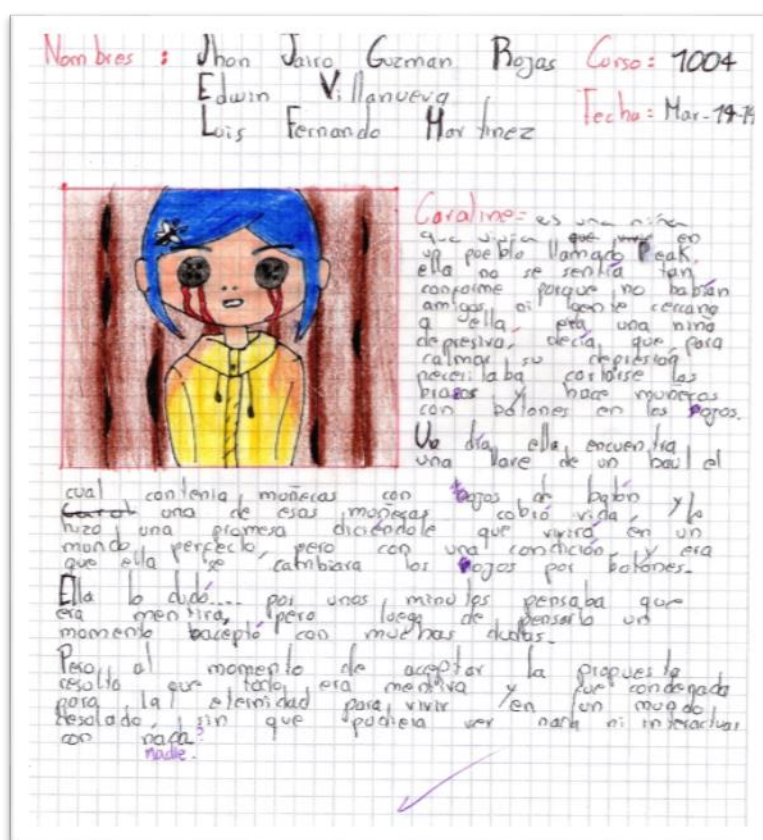 Nombres : Jhon Jairo Guzman Rojas Curso: 1004
Edwin Villanueva
Luis Fernando Martinez Fecha: Mar-19-19
Coraline= es una niña
que vivia en
un pueblo llamado Peak,
ella no se sentía tan
conforme porque no habían
amigos ni gente cercana
a ella, era una niña
depresiva, decía que para
calmar su depresión
necesitaba cortarse los
brazos y hace muñecas
con botones en los ojos.
Un día, ella encuentra
una llave de un baul el
cual contenia muñecas con ojos de botón y
una de esas muñecas cobró vida, y le
hizo una promesa diciéndole que vivirá en un
mundo perfecto, pero con una condición, y era
que ella se cambiara los ojos por botones.
Ella lo dudó.... por unos minutos pensaba que
era mentira, pero luego de pensarlo un
momento aceptó con muchas dudas.
Pero al momento de aceptar la propuesta
resulto que todo era mentira y fue condenada
para la eternidad para vivir en un mundo
desolado, sin que pudiera ver nada ni interactuar
con nada?
nadie.